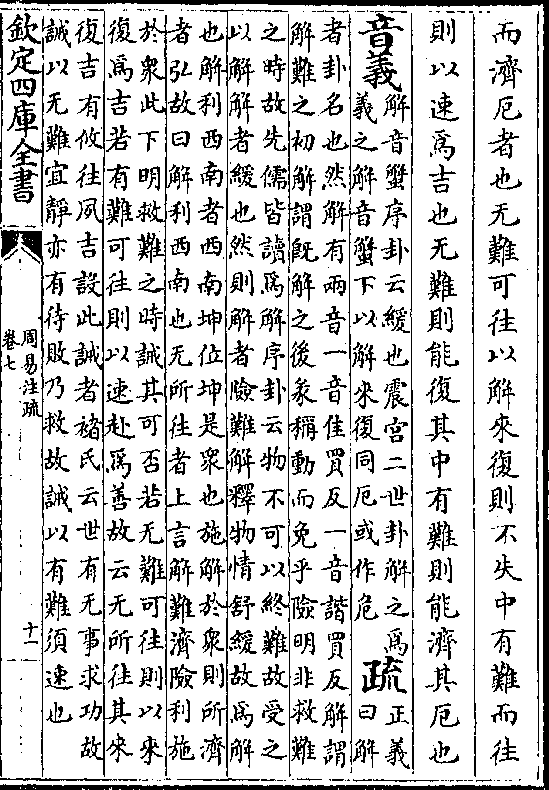 而濟厄者也无難可往以解來復則不失中有難而往
則以速爲吉也无難則能復其中有難則能濟其厄也
音義
解音蟹序卦云緩也震宮二世卦解之爲
義之解音蟹下以解來復同厄或作危
疏
正義
曰解
者卦名也然解有兩音一音佳買反一音諧買反解謂
解難之初解謂既解之後彖稱動而免乎險明非救難
之時故先儒皆讀爲解序卦云物不可以終難故受之
以解解者緩也然則解者險難解釋物情舒緩故爲解
也解利西南者西南坤位坤是衆也施解於衆則所濟
者弘故曰解利西南也无所往者上言解難濟險利施
於衆此下明救難之時誡其可否若无難可往則以來
復爲吉若有難可往則以速赴爲善故云无所往其來
復吉有攸往夙吉設此誡者褚氏云世有无事求功故
誡以无難宜靜亦有待敗乃救故誡以有難須速也
欽定四庫全書
周易注疏
卷七
十一